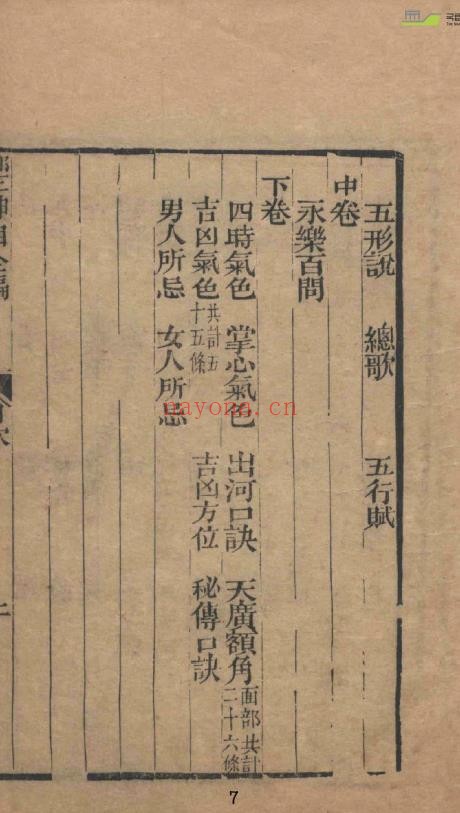 五形說 總歌 五行賦
中卷
永樂百問
下卷
四時氣色 掌心氣色 出河口訣 天廣額角 面部共計二十六條
吉凶氣色 共計五十五條 吉凶方位 秘傳口訣
男人所忌 女人所忌
nayona.cn
7